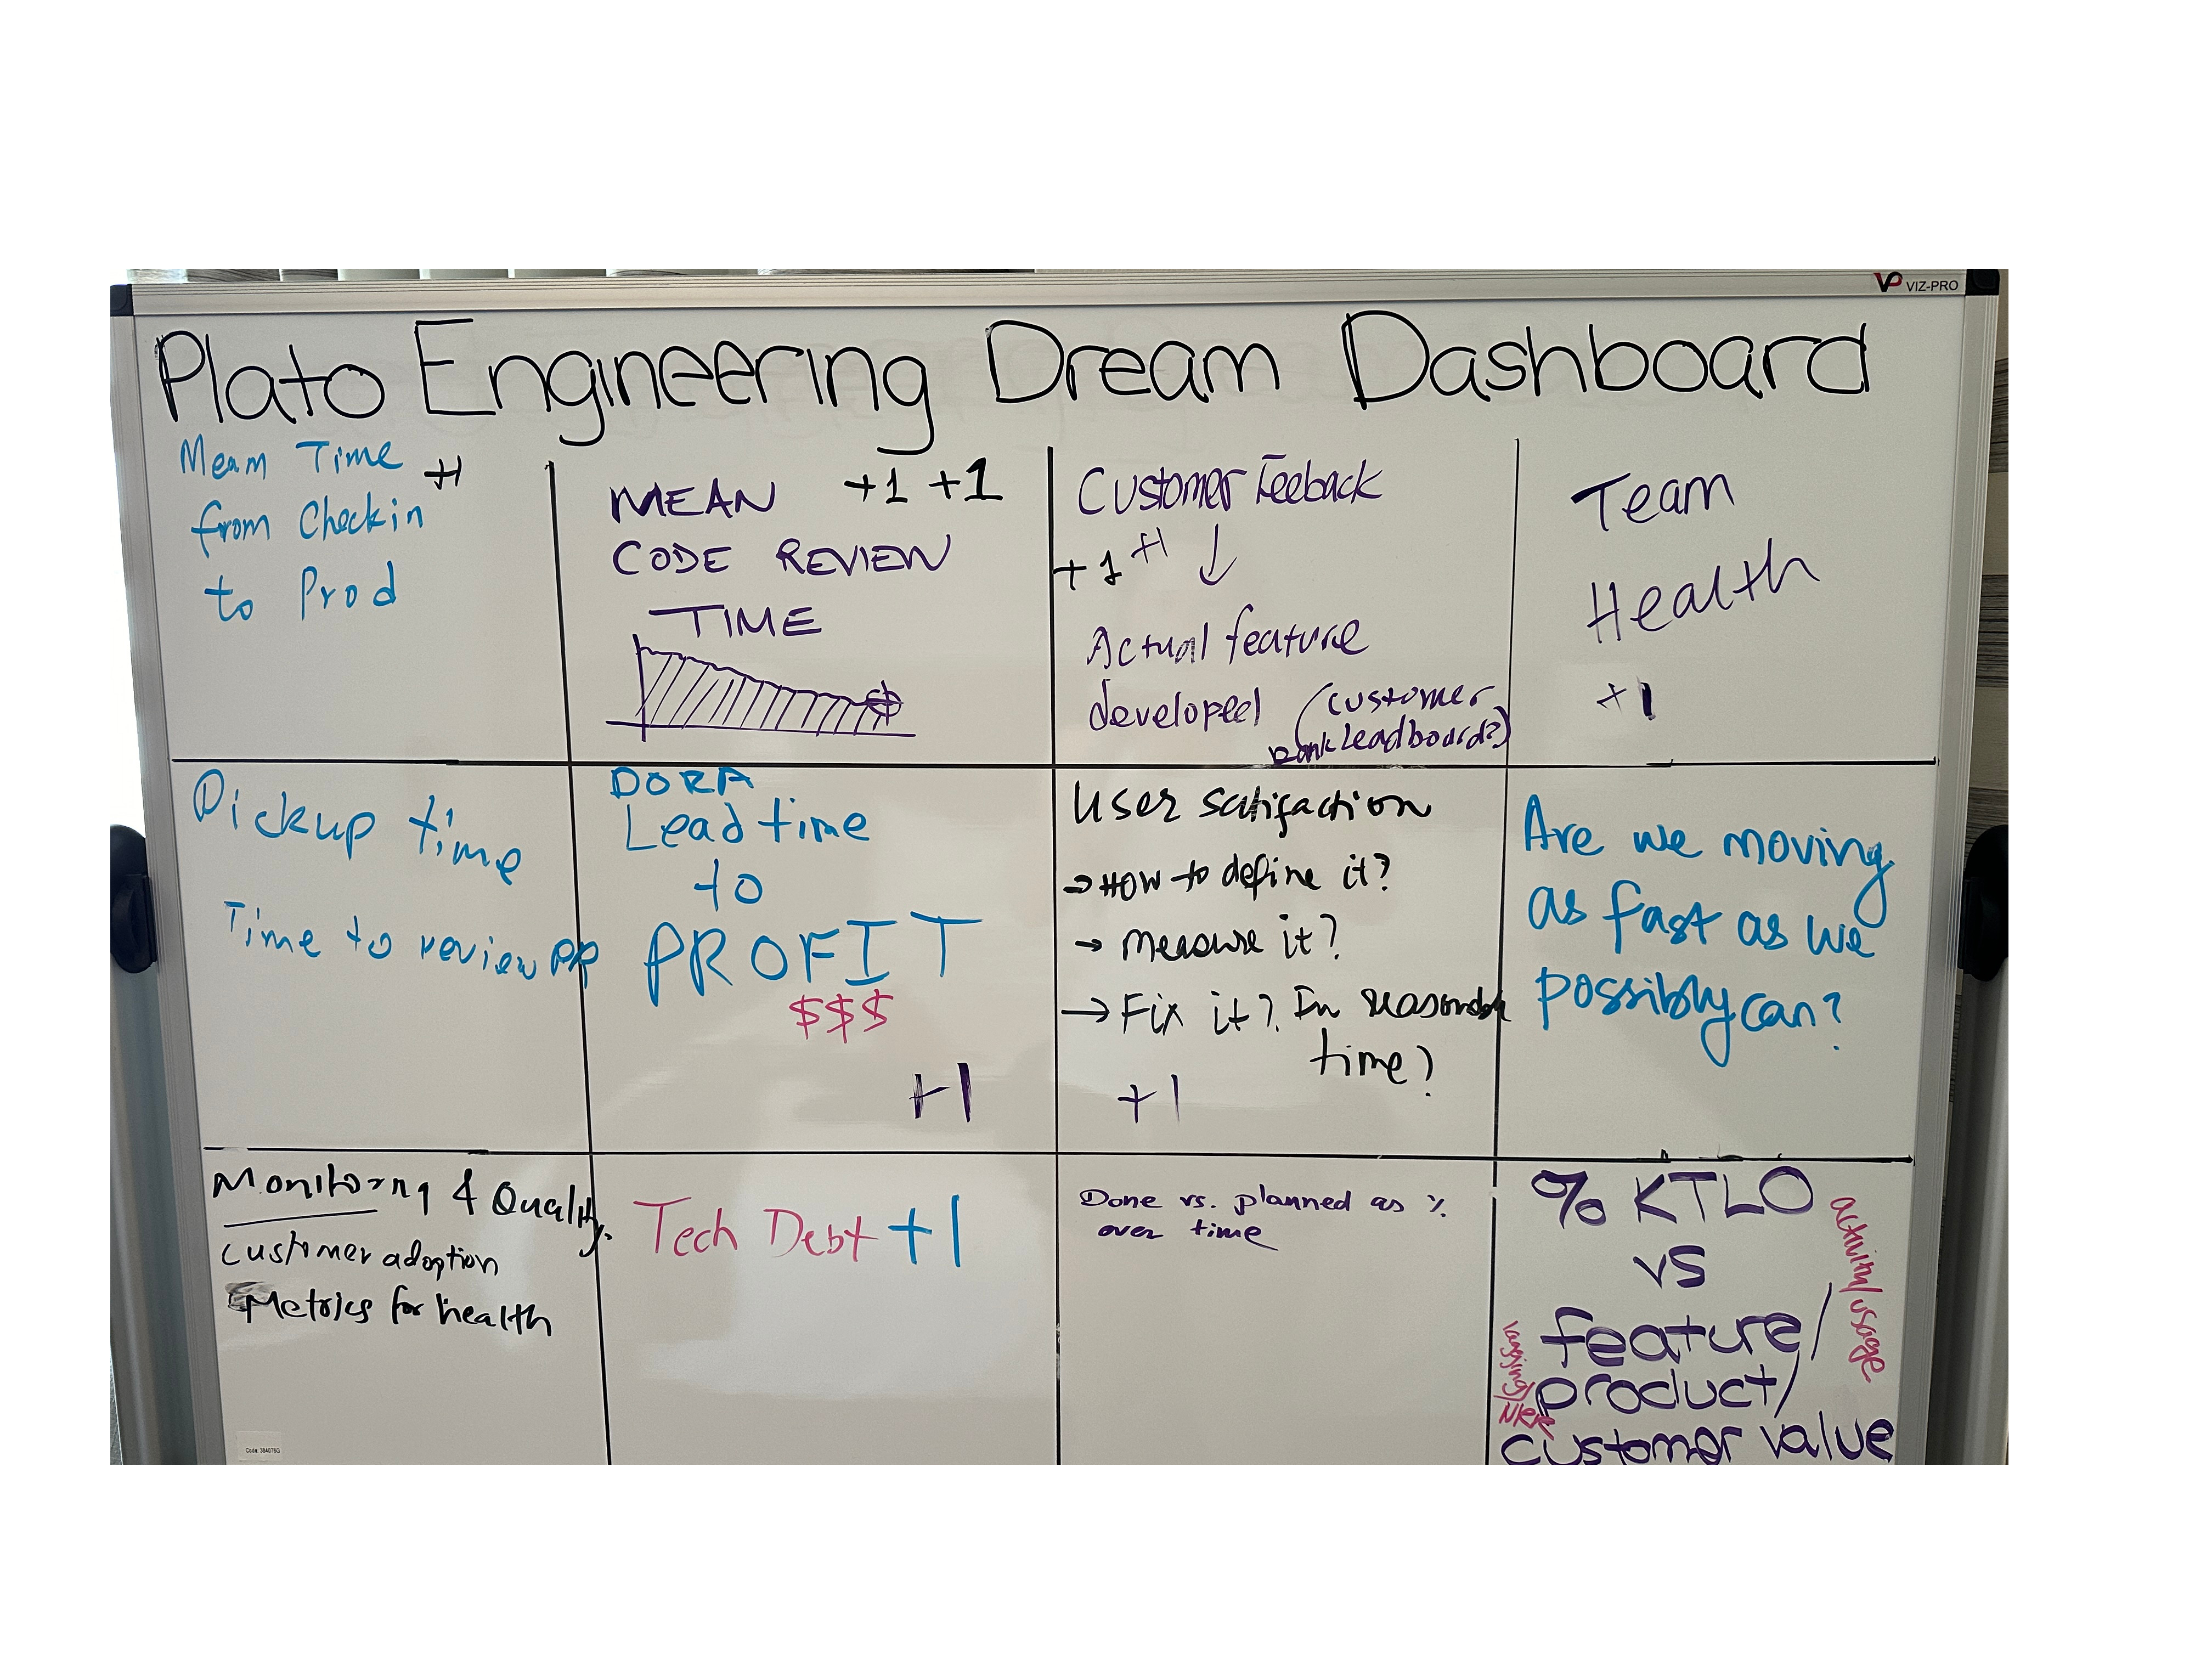 VP VIZ-PRO
Plato Engineering Dream Dashboard
Mean Time +1
from Checkin
to Prod
MEAN +1 +1
CODE REVIEW
TIME
Customer Feeback
+1 +1
Actual feature
developed (customer
rank leadboard?)
Team
Health
+1
Pickup time
Time to review PR
DORA
Lead time
to
PROFIT
$$$
+1
User satifaction
→ How to define it?
→ measure it?
→ Fix it? In reasonable
time?
+1
Are we moving
as fast as we
possibly can?
Monitoring & Quality.
customer adoption
Metrics for health
Tech Debt +1
Done vs. planned as %
over time
% KTLO
vs
feature/
product/
customer value
activity/usage
Code: 384078G